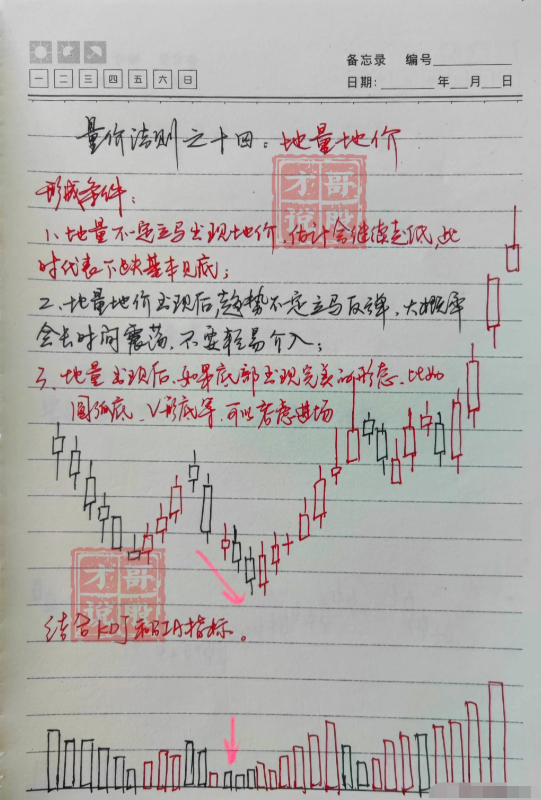 备忘录 编号
一 二 三 四 五 六 日
日期: 年 月 日
量价法则之十四：地量地价
才哥
说股
形成条件：
1、地量不一定立马出现地价，估计会继续走低，此
时代表下跌基本见底；
2、地量地价出现后，趋势不定立马反弹，大概率
会长时间震荡，不要轻易介入；
3、地量出现后，如果底部出现完美的形态，比如
圆弧底、V形底等，可以考虑进场
才哥
说股
结合KDJ和 指标。